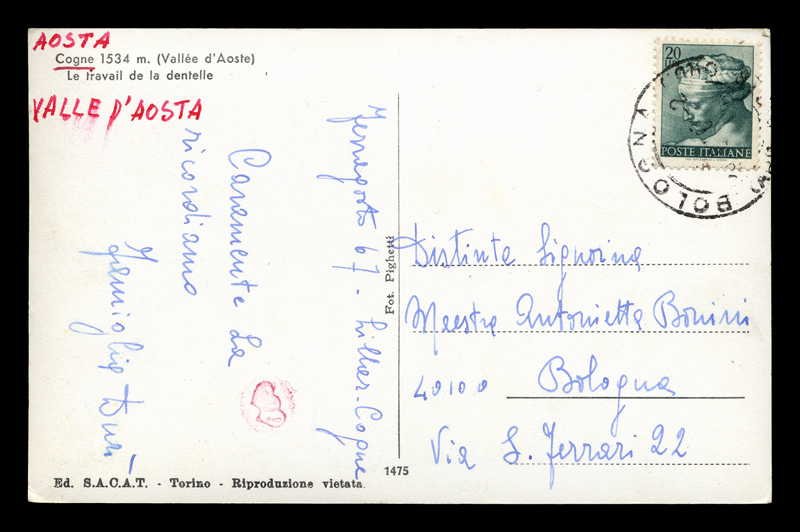 AOSTA
Cogne 1534 m. (Vallée d'Aoste)
Le travail de la dentelle
VALLE D'AOSTA
Ferragosto 67 - Lillaz-Cogne
Caramente La
ricordiamo
Famiglia
Ed. S.A.C.A.T. - Torino - Riproduzione vietata
Fot. Pighetti
1475
20
POSTE ITALIANE
BOLOGNA
BOLOGNA
Distinta Signorina
Maestra Antonietta Bonini
40100 Bologna
Via S. Ferrari 22